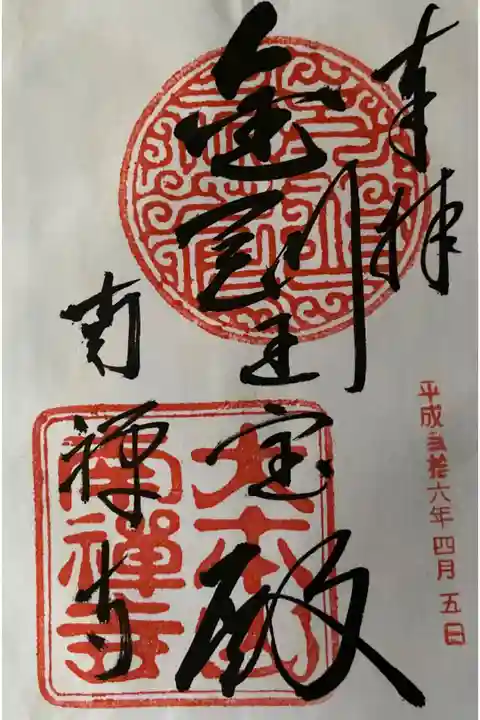 奉拝
平成弐拾六年四月五日
金剛王宝殿
大本山
南禪寺
南禪寺